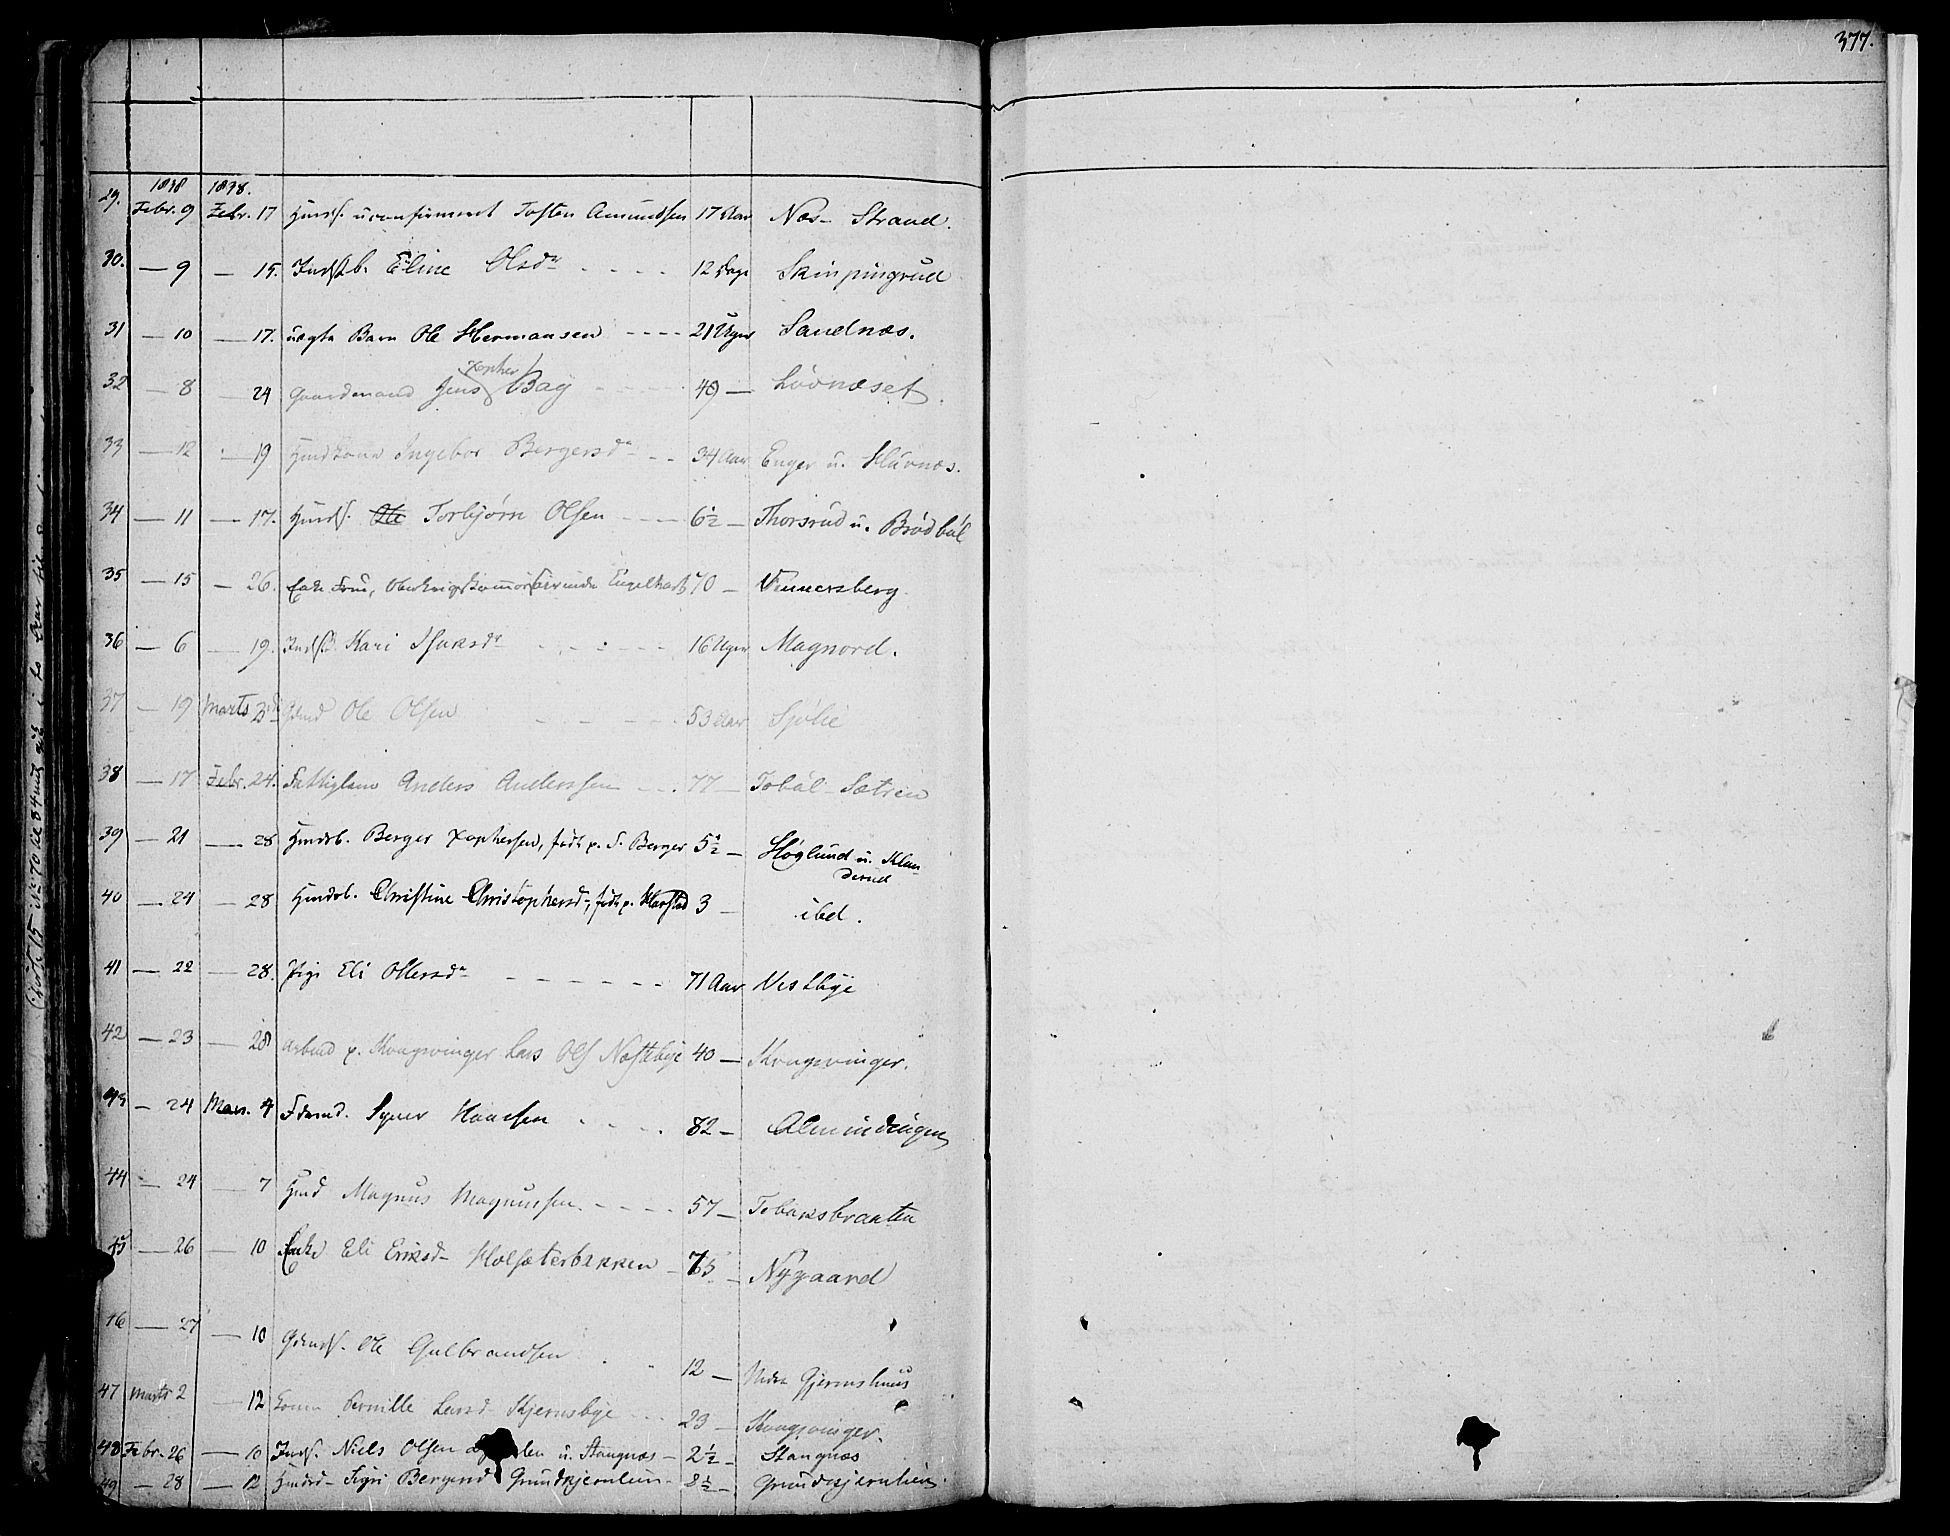 377.
1838 1838.
29. Febr. 9 Febr. 17 Hmds. uconfirmeret Tosten Amundsen 17 Aar Næs- Strand.
30. — 9 — 15. Inds. b. Eline Olsdr 12 Dage Skinpingrud
31 — 10 — 17. uægte Barn Ole Hermansen 21 Uger Sandnæs.
32 — 8 — 24 Gaardmand Jens Xopher Bay 49 — Lövnæset.
33 — 12 — 19 Hmdkone Ingebor Bergersdr 34 Aar Enger u. Hüvnæs.
34 — 11 — 17. Hmds. Ole Torbjørn Olsen 6½ — Thorsrud u. Brødböl
35 — 15 — 26. Enke Frue, Engelhart 70 — Vennersberg
36 — 6 — 19. Inds. B. Kari Isaksdr 16 Uger Magnord.
37 — 19 Marts 3 Gmd Ole Olsen 53 Aar Sjølie
38 — 17 Febr. 24. Fattiglem Anders Anderssen 77 — Tobøl- Sætren
39 — 21 — 28 Hmdsb. Berger Xophersen, født p. S. Berger 5½ — Høglund u. Klanderud
40 — 24 — 28 Hmdsb. Christine Christophersdr, født p. Harstad 3 — ibd.
41 — 22 — 28. Pige Eli Ollersdr 71 Aar Vestbye
42 — 23 — 28 Arbmd p. Kongsvinger Lars Ols Næstebye 40 — Kongsvinger.
43 — 24 Mars. 4 Syver Haarsen 82 — Almindingen
44 — 24 — 7 Hmd Magnus Magnussen 57 — Tobaksbraaten
45 — 26 — 10 Enke Eli Eriksd Holsæterbakken 75 — Nÿgaard
46 — 27 — 10 Gdmds. Ole Gulbrandsen 12 — Nedre Gjermshuus
47 Marts 2 — 12 Kone Pernille Larsd Skjernsbye 23 — Kongsvinger.
48 Febr. 26 — 10 Inds. Niels Olsen u. Stangnæs 2½ — Stangnæs
49 — 28 — 12 Hmdsd Sigri Bergersd Grundtjernlien 2½ — Grundtjernlien.